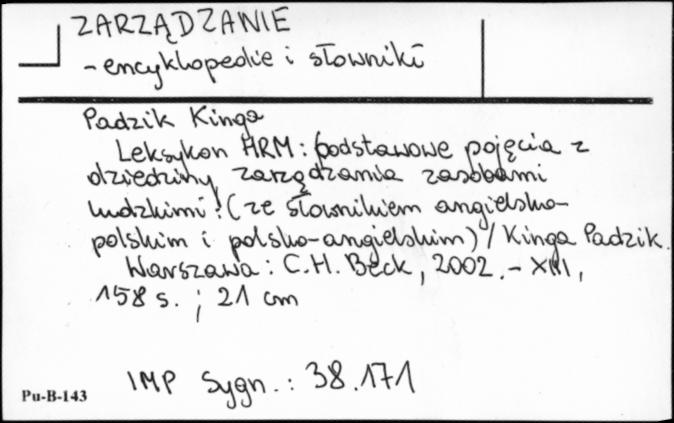 ZARZĄDZANIE
- encyklopedie i słowniki
Padzik Kinga
Leksykon HRM : podstawowe pojęcia z
dziedziny zarządzania zasobami
ludzkimi : (ze słownikiem angielsko-
polskim i polsko-angielskim) / Kinga Padzik.
Warszawa : C.H. Beck, 2002. - XIII,
158 s. ; 21 cm
IMP Sygn. : 38.171
Pu-B-143